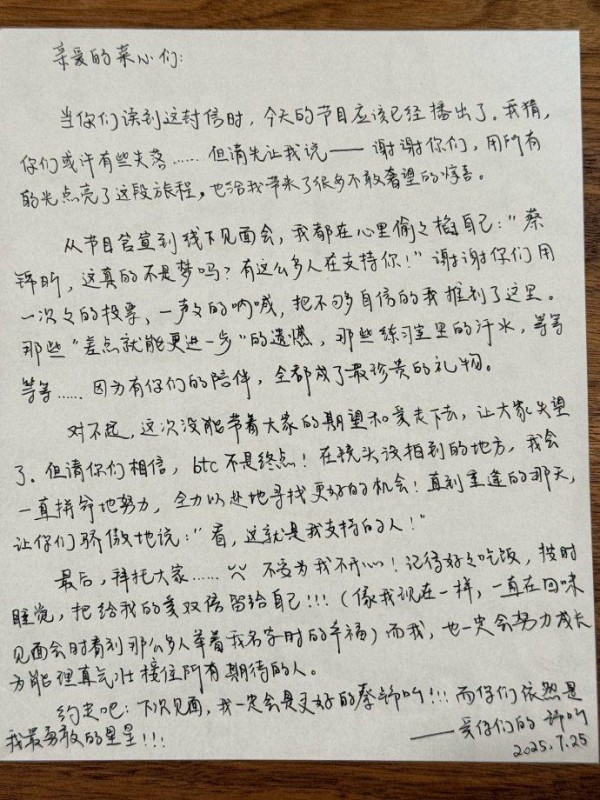 亲爱的菜心们:
当你们读到这封信时,今天的节目应该已经播出了。我猜,
你们或许有些失落……但请先让我说——谢谢你们,用所有
的光点亮了这段旅程,也给我带来了很多不敢奢望的惊喜。
从节目官宣到线下见面会,我都在心里偷々掐自己:"蔡
锦昕,这真的不是梦吗?有这么多人在支持你!"谢谢你们用
一次々的投票、一声々的呐喊,把不够自信的我推到了这里。
那些"差点就能更进一步"的遗憾,那些练习室里的汗水,等等
等等……因为有你们的陪伴,全都成了最珍贵的礼物。
对不起,这次没能带着大家的期望和爱走下去,让大家失望
了。但请你们相信,btc不是终点!在镜头没拍到的地方,我会
一直拼命地努力,全力以赴地寻找更好的机会!直到重逢的那天,
让你们骄傲地说:"看,这就是我支持的人!"
最后,拜托大家…… 不要为我不开心!记得好々吃饭,按时
睡觉,把给我的爱双倍留给自己!!!(像我现在一样,一直在回味
见面会时看到那么多人举着我名字时的幸福)而我,也一定会努力成长
为能理直气壮接住所有期待的人。
约定吧:下次见面,我一定会是更好的蔡锦昕!!!而你们依然是
我最勇敢的星星!!!
——爱你们的 锦昕
2025.7.25